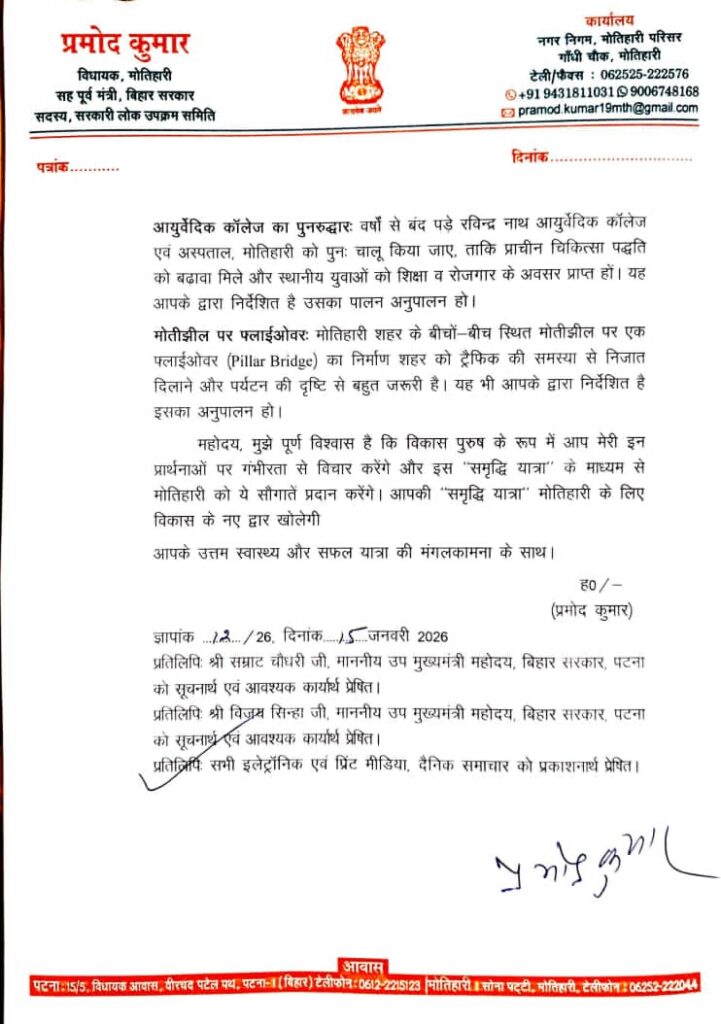 प्रमोद कुमार
विधायक, मोतिहारी
सह पूर्व मंत्री, बिहार सरकार
सदस्य, सरकारी लोक उपक्रम समिति
सत्यमेव जयते
कार्यालय
नगर निगम, मोतिहारी परिसर
गाँधी चौक, मोतिहारी
टेली/फैक्स : 062525-222576
+91 9431811031 9006748168
pramod.kumar19mth@gmail.com
पत्रांक...........
दिनांक................................
आयुर्वेदिक कॉलेज का पुनरुद्धारः वर्षों से बंद पड़े रविन्द्र नाथ आयुर्वेदिक कॉलेज
एवं अस्पताल, मोतिहारी को पुनः चालू किया जाए, ताकि प्राचीन चिकित्सा पद्धति
को बढावा मिले और स्थानीय युवाओं को शिक्षा व रोजगार के अवसर प्राप्त हों। यह
आपके द्वारा निर्देशित है उसका पालन अनुपालन हो।
मोतीझील पर फ्लाईओवरः मोतिहारी शहर के बीचों–बीच स्थित मोतीझील पर एक
फ्लाईओवर (Pillar Bridge) का निर्माण शहर को ट्रैफिक की समस्या से निजात
दिलाने और पर्यटन की दृष्टि से बहुत जरूरी है। यह भी आपके द्वारा निर्देशित है
इसका अनुपालन हो।
महोदय, मुझे पूर्ण विश्वास है कि विकास पुरुष के रूप में आप मेरी इन
प्रार्थनाओं पर गंभीरता से विचार करेंगे और इस "समृद्धि यात्रा" के माध्यम से
मोतिहारी को ये सौगातें प्रदान करेंगे। आपकी "समृद्धि यात्रा" मोतिहारी के लिए
विकास के नए द्वार खोलेगी
आपके उत्तम स्वास्थ्य और सफल यात्रा की मंगलकामना के साथ।
ह0/–
(प्रमोद कुमार)
ज्ञापांक ...12.../26, दिनांक.....15.....जनवरी 2026
प्रतिलिपिः श्री सम्राट चौधरी जी, माननीय उप मुख्यमंत्री महोदय, बिहार सरकार, पटना
को सूचनार्थ एवं आवश्यक कार्यार्थ प्रेषित।
प्रतिलिपिः श्री विजय सिन्हा जी, माननीय उप मुख्यमंत्री महोदय, बिहार सरकार, पटना
को सूचनार्थ एवं आवश्यक कार्यार्थ प्रेषित।
प्रतिलिपिः सभी इलेट्रॉनिक एवं प्रिंट मीडिया, दैनिक समाचार को प्रकाशनार्थ प्रेषित।
प्रमोद कुमार
आवास
पटना:15/5, विधायक आवास, वीरचद पटेल पथ, पटना-1 (बिहार) टेलीफोन: 0612-2215123 मोतिहारी : सोना पट्टी, मोतिहारी, टेलीफोन : 06252-222044